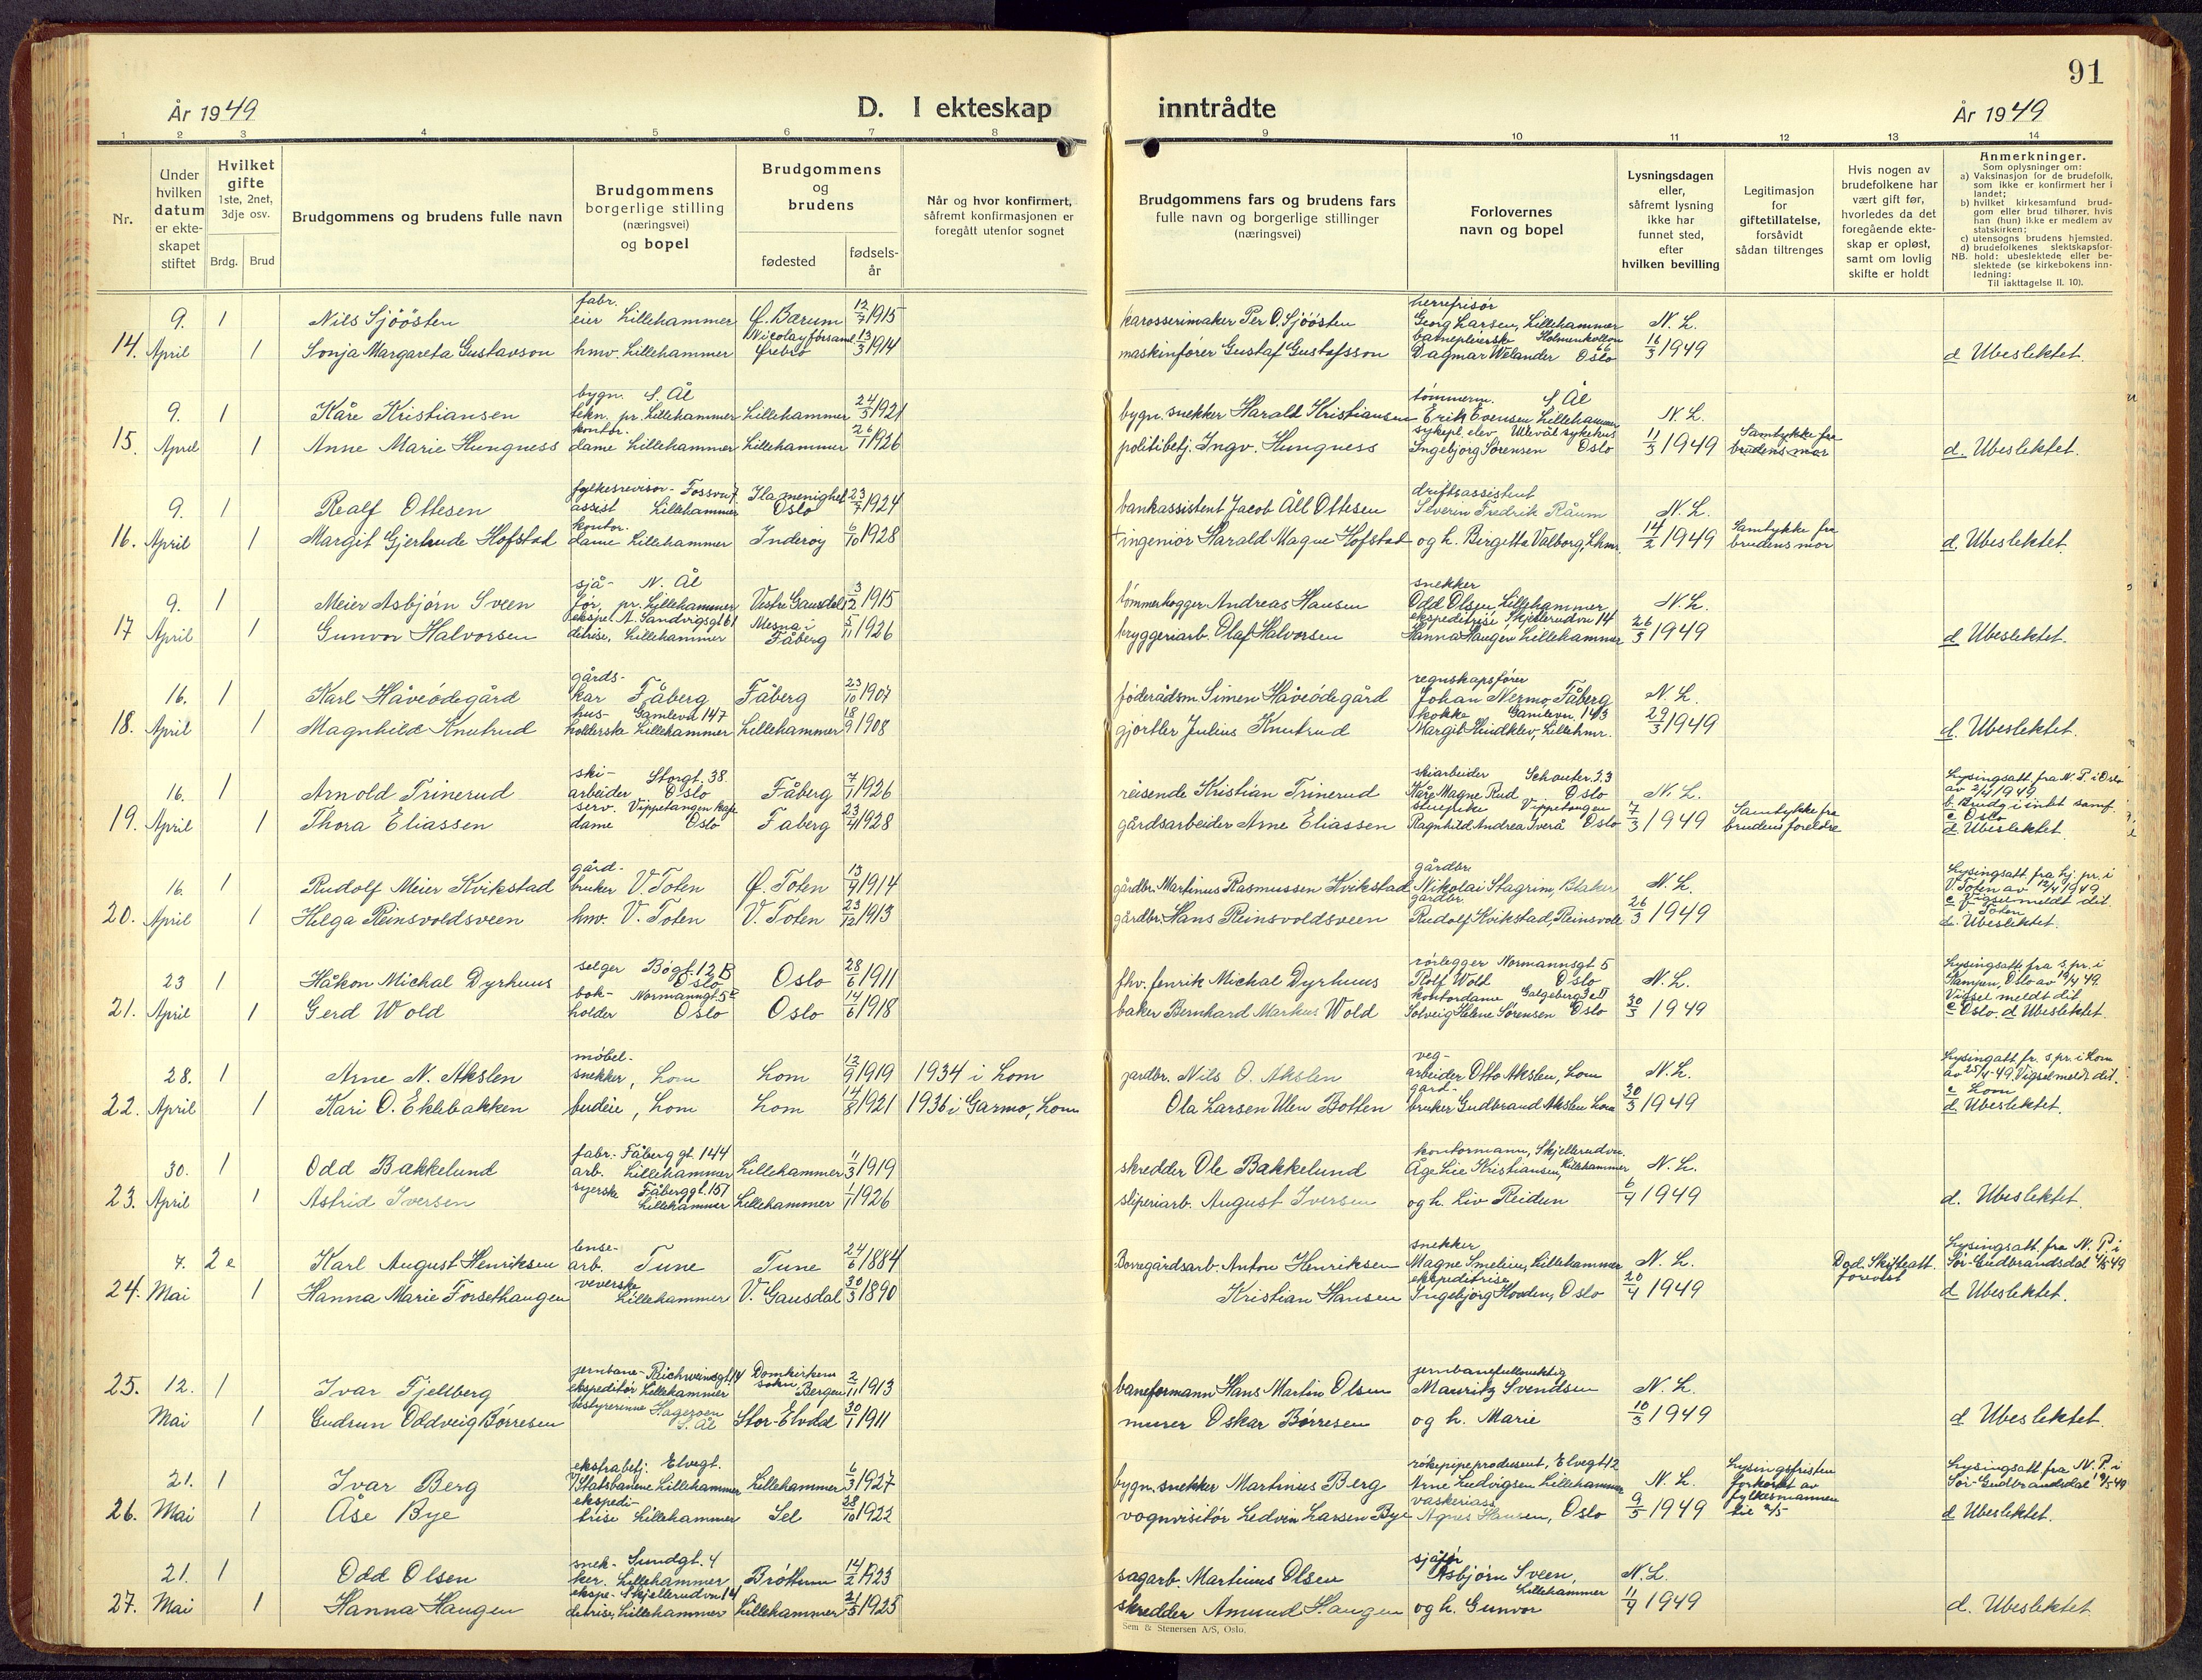 91
År 1949
D. I ekteskap inntrådte
År 1949
1 2 3 4 5 6 7 8 9 10 11 12 13 14
Nr.
Under hvilken datum er ekte-skapet stiftet
Hvilket gifte 1ste, 2net, 3dje osv.
Brdg. Brud
Brudgommens og brudens fulle navn
Brudgommens borgerlige stilling (næringsvei) og bopel
Brudgommens og brudens
fødested
fødsels-år
Når og hvor konfirmert, såfremt konfirmasjonen er foregått utenfor sognet
Brudgommens fars og brudens fars fulle navn og borgerlige stillinger (næringsvei)
Forlovernes navn og bopel
Lysningsdagen eller, såfremt lysning ikke har funnet sted, efter hvilken bevilling
Legitimasjon for giftetillatelse, forsåvidt sådan tiltrenges
Hvis nogen av brudefolkene har vært gift før, hvorledes da det foregående ekte-skap er opløst, samt om lovlig skifte er holdt
Anmerkninger.
Som oplysninger om:
a) Vaksinasjon for de brudefolk, som ikke er konfirmert her i landet;
b) hvilket kirkesamfund brud-gom eller brud tilhører, hvis han (hun) ikke er medlem av statskirken;
c) utensogns brudens hjemsted.
d) brudefolkenes slektskapsfor-hold: ubeslektede eller be-slektede (se kirkebokens inn-ledning:
NB.
Til iakttagelse II. 10).
9. 1 Nils Sjöösten fabr. eier Lillehammer Ø. Bærum 12/7 1915 karosserimaker Per O. Sjöösten herrefrisør Georg Larsen, Lillehammer N. L.
14. April 1 Sonja Margareta Gustavson hmv. Lillehammer Nicolay församl. Örebro 13/3 1914 maskinfører Gustaf Gustafsson barnepleierske Holmenkollen 66 Dagmar Welander Oslo 16/3 1949 d Ubeslektet.
9. 1 Kåre Kristiansen bygn. S. Ål tekn. pr. Lillehammer Lillehammer 24/5 1921 bygn. snekker Harald Kristiansen tømmerm. S. Ål Erik Evensen Lillehammer N. L.
15. April 1 Anne Marie Hungness kontor. dame Lillehammer Lillehammer 26/1 1926 politibetj. Ingv. Hungness sykepl. elev Ullevål sykehus Ingebjørg Sørensen Oslo 11/3 1949 Samtykke fra brudens mor d. Ubeslektet.
9. 1 Realf Ottesen fylkesrevisor- Fossv. 7 assist Lillehammer Ila menighet Oslo 23/7 1924 bankassistent Jacob Åll Ottesen driftsassistent Severin Fredrik Råum N. L.
16. April 1 Margit Gjertrude Hofstad kontor. dame Lillehammer Inderøy 6/10 1928 † ingeniør Harald Magne Hofstad og h. Bergette Valborg, Lhmr. 14/2 1949 Samtykke fra brudens mor d. Ubeslektet
9. 1 Meier Asbjørn Sveen sjå- N. Ål før, pr. Lillehammer Vestre Gausdal 3/2 1915 tømmerhogger Andreas Hansen snekker Odd Olsen, Lillehammer N. L.
17 April 1 Gunvor Halvorsen ekspe. A. Sandvigsgt 61 ditrise, Lillehammer Mesna i Fåberg 5/11 1926 bryggeriarb. Olaf Halvorsen ekspeditrise Skjellerudvn 14 Hanna Haugen Lillehammer 26/3 1949 d Ubeslektet.
16. 1 Karl Håveødegård gårds- kar Fåberg Fåberg 23/10 1907 føderådsm. Simen Håveødegård regnskapsfører Johan Nermo, Fåberg N. L.
18. April 1 Magnhild Knutrud hus- Gamlevn 147 holderske Lillehammer Lillehammer 18/9 1908 gjørtler Julius Knutrud kokke Gamlevn. 143 Margit Hindklev, Lillehmr. 29/3 1949 d. Ubeslektet.
16. 1 Arnold Trinerud ski- Storgt. 38. arbeider Oslo Fåberg 7/1 1926 reisende Kristian Trinerud skiarbeider Schouter. 23 Kåre Magne Rud Oslo N. L. Lysingsatt. fra N. P. i Oslo av 2/4 1949.
19. April 1 Thora Eliassen serv. Vippetangen kafe dame Oslo Faberg 23/4 1928 gårdsarbeider Arne Eliassen stuepike Vippetangen Ragnhild Andrea Sverå Oslo 7/3 1949 Samtykke fra brudens foreldre b. Brudg i intet samf. c Oslo d Ubeslektet
16. 1 Rudolf Meier Kvikstad gård- bruker V. Toten Ø. Toten 13/9 1914 gårdbr. Martinus Rasmussen Kvikstad gårdbr Nikolai Stagrim, N. L. Lysingsatt. fra hj. pr. i V. Toten av 12/4 1949
20. April 1 Helga Reinsvoldsveen hmv. V. Toten V. Toten 23/12 1913 gårdbr. Hans Reinsvoldsveen gårdbr. Rudolf Kvikstad, Reinsvoll 26/3 1949 Vigsel meldt dit. c V. Toten d. Ubeslektet.
23 1 Håkon Michal Dyrhuus selger Bøgt. 12 B Oslo Oslo 28/6 1911 fhv. fenrik Michal Dyrhuus rørlegger Normannsgt 5 Rolf Wold Oslo N. L. Lysingsatt. fra s. pr. i Kampen, Oslo av 19/4 49.
21. April 1 Gerd Wold bok- Normanngt. 5 holder Oslo Oslo 14/6 1918 baker Bernhard Markus Wold kontordame Galgeberg 3 e II Solveig Helene Sørensen Oslo 30/3 1949 Vigsel meldt dit c Oslo. d Ubeslektet.
28. 1 Arne N. Akslen møbel- snekker, Lom Lom 12/9 1919 1934 i Lom gardbr. Nils O. Akslen veg- arbeider Otto Akslen, Lom N. L. Lysingatt. fr. s. pr. i Lom av 25/4-49. Vigsel meldt dit.
22. April 1 Kari O. Eklebakken budeie, Lom Lom 14/8 1921 1936 i Garmo, Lom Ola Larsen Ulen Botten gård- bruker Gudbrand Akslen Lom 30/3 1949 c Lom d. Ubeslektet.
30. 1 Odd Bakkelund fabr.- Fåberggt. 144 arb. Lillehammer Lillehammer 11/3 1919 skredder Ole Bakkelund kontormann, Skjellerudvn. Åge Lie Kristiansen, Lillehammer N. L.
23. April 1 Astrid Iversen syerske Fåberggt. 151 Lillehammer Lillehammer 1/1 1926 sliperiarb. August Iversen og h. Liv Reidun 6/4 1949 d. Ubeslektet.
7. 2 e Karl August Henriksen lense- arb. Tune Tune 24/6 1884 Borregårdsarb. Anton Henriksen snekker Magne Smelien, Lillehammer N. L. Død. Skifteatt. forevist Lysingsatt. fra N. P. i Sør-Gudbrandsdal 4/5 49
24. Mai 1 Hanna Marie Forsethaugen veverske Lillehammer V. Gausdal 30/3 1890 Kristian Hansen ekspeditrise Ingebjørg Hovden, Oslo 20/4 1949 d Ubeslektet.
25. 12. 1 Ivar Fjellberg jernbane- Reichweinsgt. 14 ekspeditør Lillehammer Domkirkens sokn, Bergen 2/11 1913 baneformann Hans Martin Olsen jernbanefullmektig Mauritz Svendsen N. L.
Mai 1 Gudrun Oddveig Børresen bestyrerinne Hageroen S. Ål Stor-Elvdal 30/1 1911 murer Oskar Børresen og h. Marie 10/3 1949 d Ubeslektet.
21. 1 Ivar Berg ekstrabetj. Elvegt. v/Statsbanene Lillehammer Lillehammer 6/3 1927 bygn. snekker Martinus Berg røkepipeprodusent, Elvegt 12 Arne Ludvigsen Lillehammer N. L. Lysingsfristen forkortet av fylkesmannen Lysingsatt fra N. P. i Sør-Gudbrandsdal 19/5 49
26. Mai 1 Åse Bye ekspedi- trise Lillehammer Sel 28/10 1922 vognvisitør Ledvin Larsen Bye vaskeriass. Agnes Hansen, Oslo 9/5 1949 d Ubeslektet.
21. 1 Odd Olsen snek- Sundgt. 4 ker. Lillehammer Brøttum 14/2 1923 sagarb. Martinus Olsen sjåfør Asbjørn Sveen, Lillehammer N. L.
27. Mai 1 Hanna Haugen ekspe- Skjellerudvn 14 ditrise, Lillehammer Lillehammer 21/5 1925 skredder Amund Haugen og h. Gunvor 11/4 1949 d. Ubeslektet.
Sem & Stenersen A/S, Oslo.